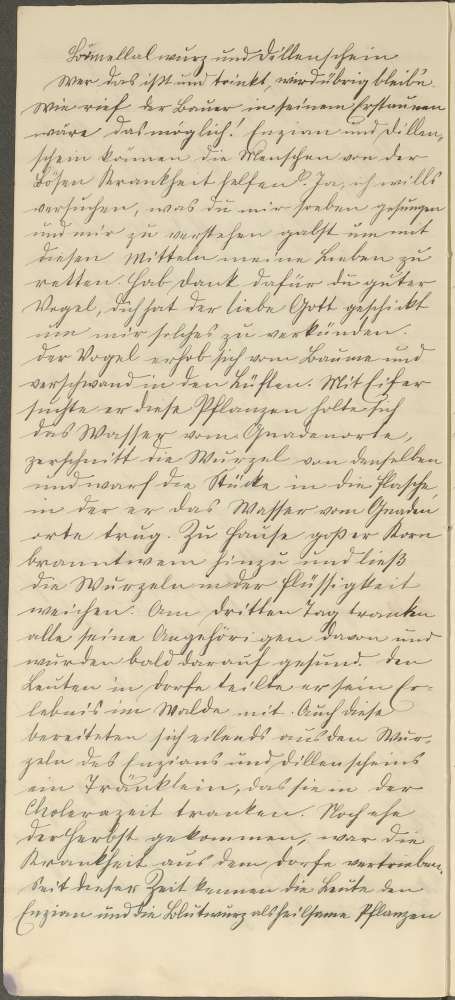 Bömellalwurz und Dillenschein
Wer das ißt und trinkt, wird übrig bleib'n.
Wie rief der Bauer in seinem Erstaunen
wäre das möglich! Enzian und Dillen-
schein können die Menschen von der
bösen Krankheit helfen? Ja, ich will's
versuchen, was du mir soeben gesungen
und mir zu verstehen gabst um mit
diesen Mitteln meine Lieben zu
retten. Hab Dank dafür du guter
Vogel, dich hat der liebe Gott geschickt
um mir solches zu verkünden.
Der Vogel erhob sich vom Baume und
verschwand in den Lüften. Mit Eifer
suchte er diese Pflanzen holte sich
das Wasser vom Gnadenorte,
zerschnitt die Wurzel von denselben
und warf die Stücke in die Flasche
in der er das Wasser vom Gnaden
orte trug. Zu Hause goß er Korn
branntwein hinzu und ließ
die Wurzeln in der Flüssigkeit
weichen. Am dritten Tag tranken
alle seine Angehörigen davon und
wurden bald darauf gesund. Den
Leuten im Dorfe teilte er sein Er-
lebnis im Walde mit. Auch diese
bereiteten sich eilends aus den Wur-
zeln des Enzians und Dillenscheins
ein Tränklein, das sie in der
Cholerazeit tranken. Noch ehe
der Herbst gekommen, war die
Krankheit aus dem Dorfe vertrieben.
Seit dieser Zeit kennen die Leute den
Enzian und die Blutwurz als heilsame Pflanzen